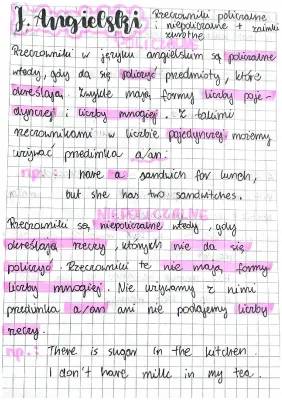 J. Angielski
Rzeczowniki policzalne
niepoliczalne + zaimki
zwrotne
Rzeczowniki w języku angielskim są policzalne
wtedy, gdy da się policzyć przedmioty, które
określają. Zwykle mają formy liczby poje-
dynczej i liczby mnogiej. Z takimi
rzeczownikami w liczbie pojedynczej możemy
używać przedimka a/an.
np.: I have a sandwich for lunch,
but she has two sandwitches.
NIEPOLICZALNE
Rzeczowniki są niepoliczalne wtedy, gdy
określają rzeczy, których nie da się
policzyć. Rzeczowniki te nie mają formy
liczby mnogiej. Nie używamy z nimi
przedimka a/an ani nie podajemy liczby
rzeczy.
np.: There is sugar in the kitchen.
I don't have milk in my tea.